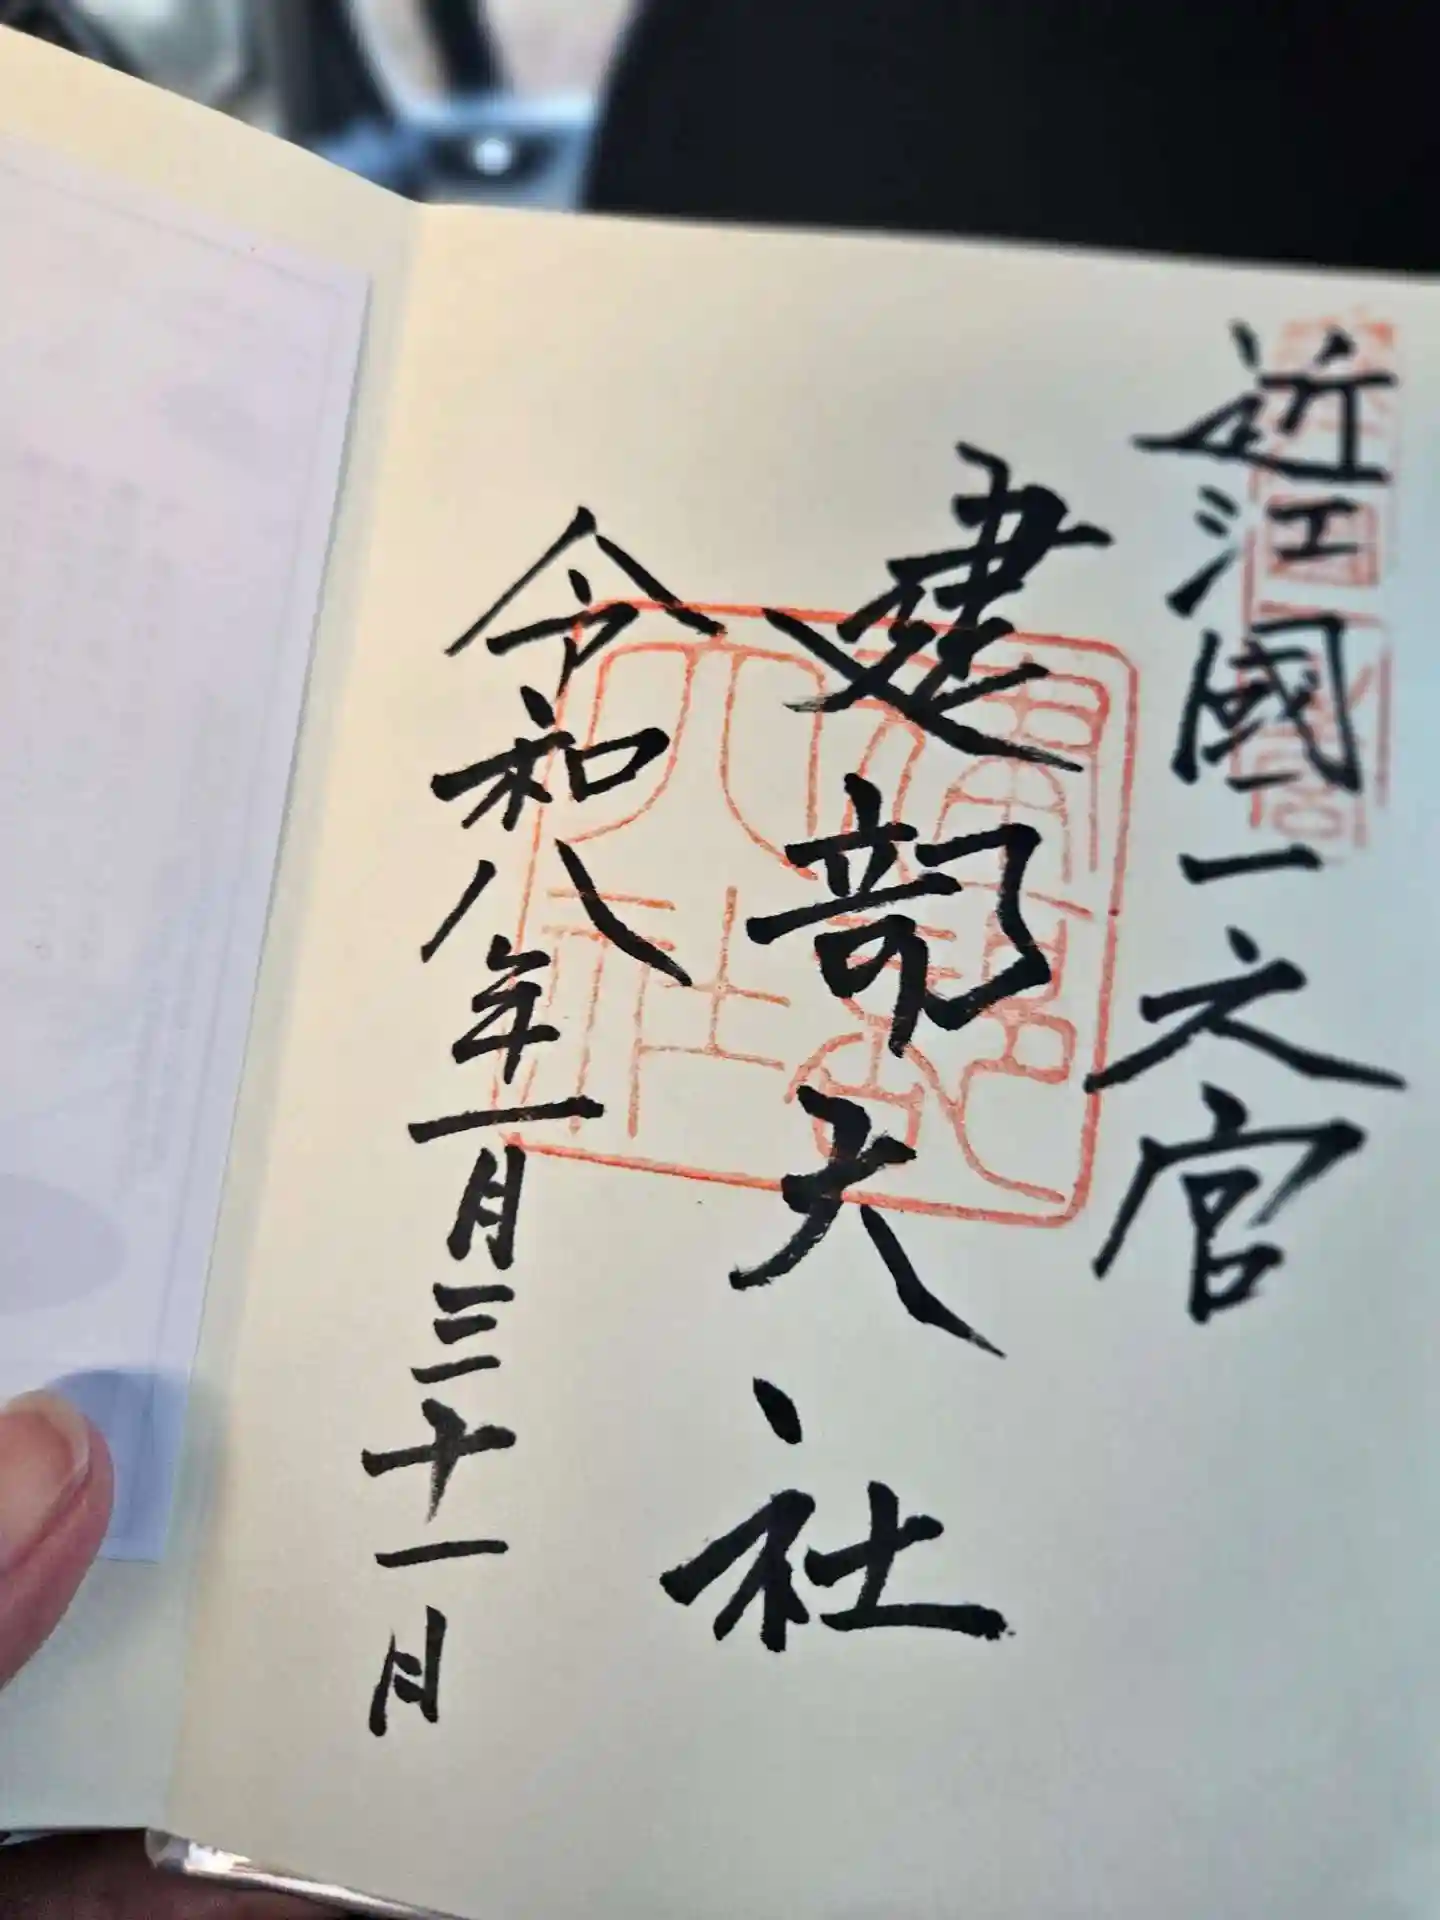 近江國一之宮
建部大社
令和八年一月三十一日